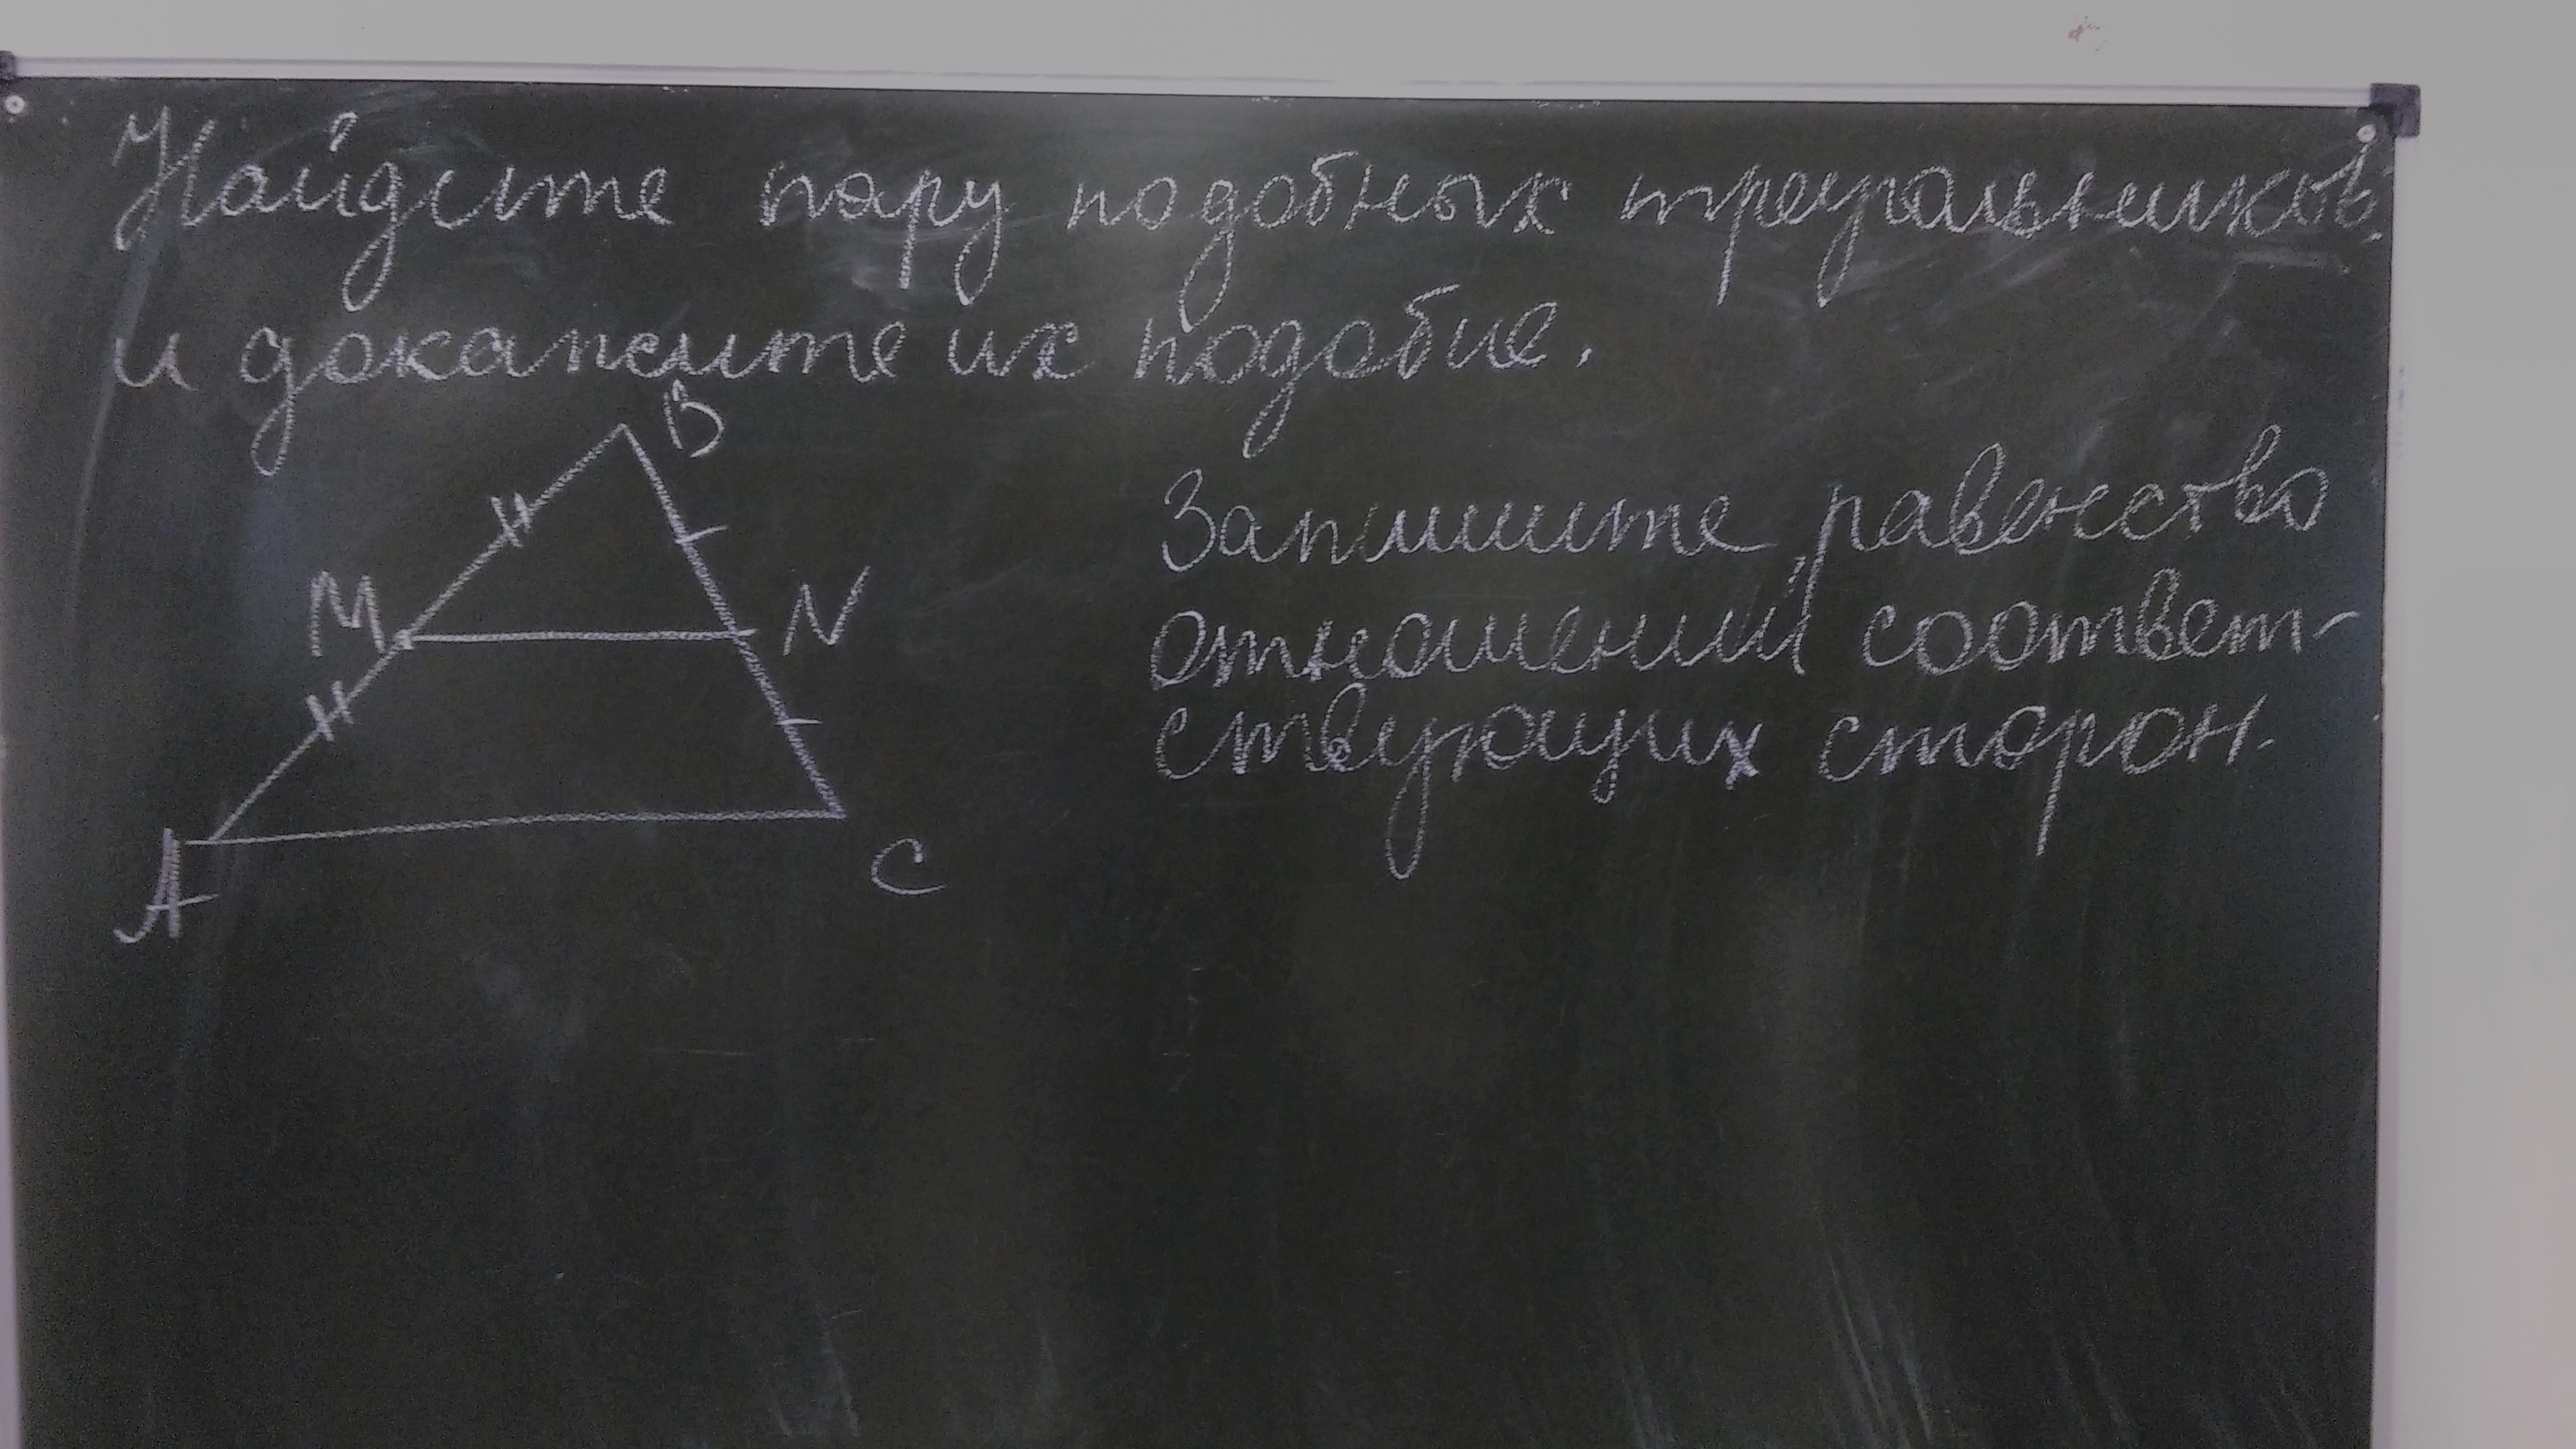 Найдите пару подобных треугольников,
и докажите их подобие.
B
Запишите равенство
M N
отношений соответ-
ствующих сторон.
A C